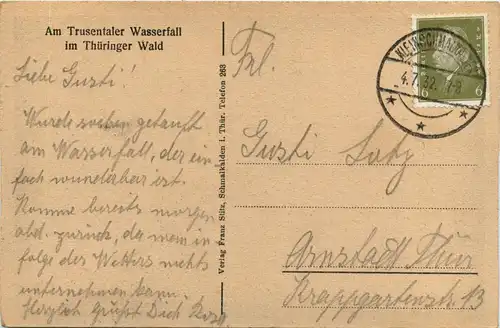 Am Trusentaler Wasserfall
im Thüringer Wald
Liebe Gusti!
Wurde soeben getauft
am Wasserfall, der ein-
fach wunderbar ist.
Komme bereits morgen
abd. zurück, da man in-
folge des Wetters nichts
unternehmen kann.
Herzlich grüßt Dich
Verlag Franz Silz, Schmalkalden i. Thür. Telefon 263
KLEINSCHMALKALDEN
4.7.32. 7-8
6 6
Frl.
Gusti Lotz
Arnstadt Thür
Krappgartenstr. 13